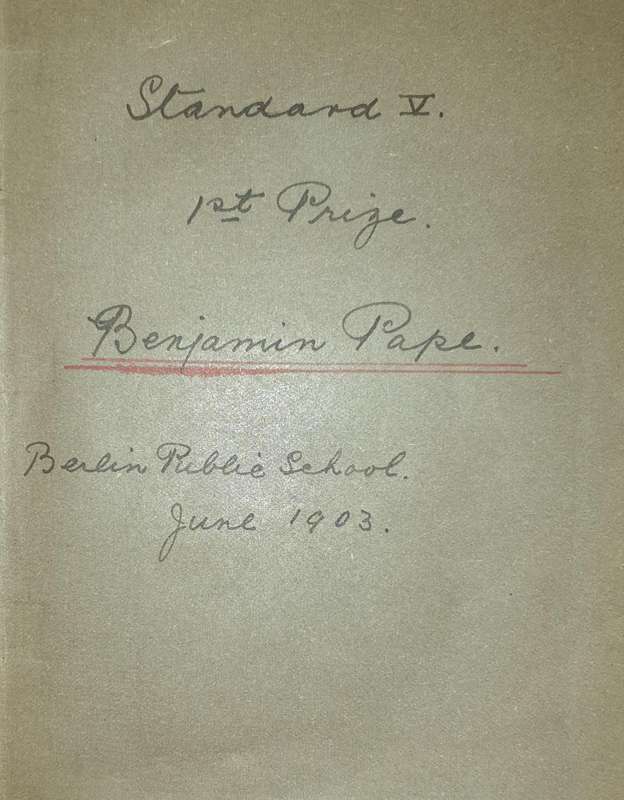 Standard V.
1st Prize.
Benjamin Pape.
Berlin Public School.
June 1903.